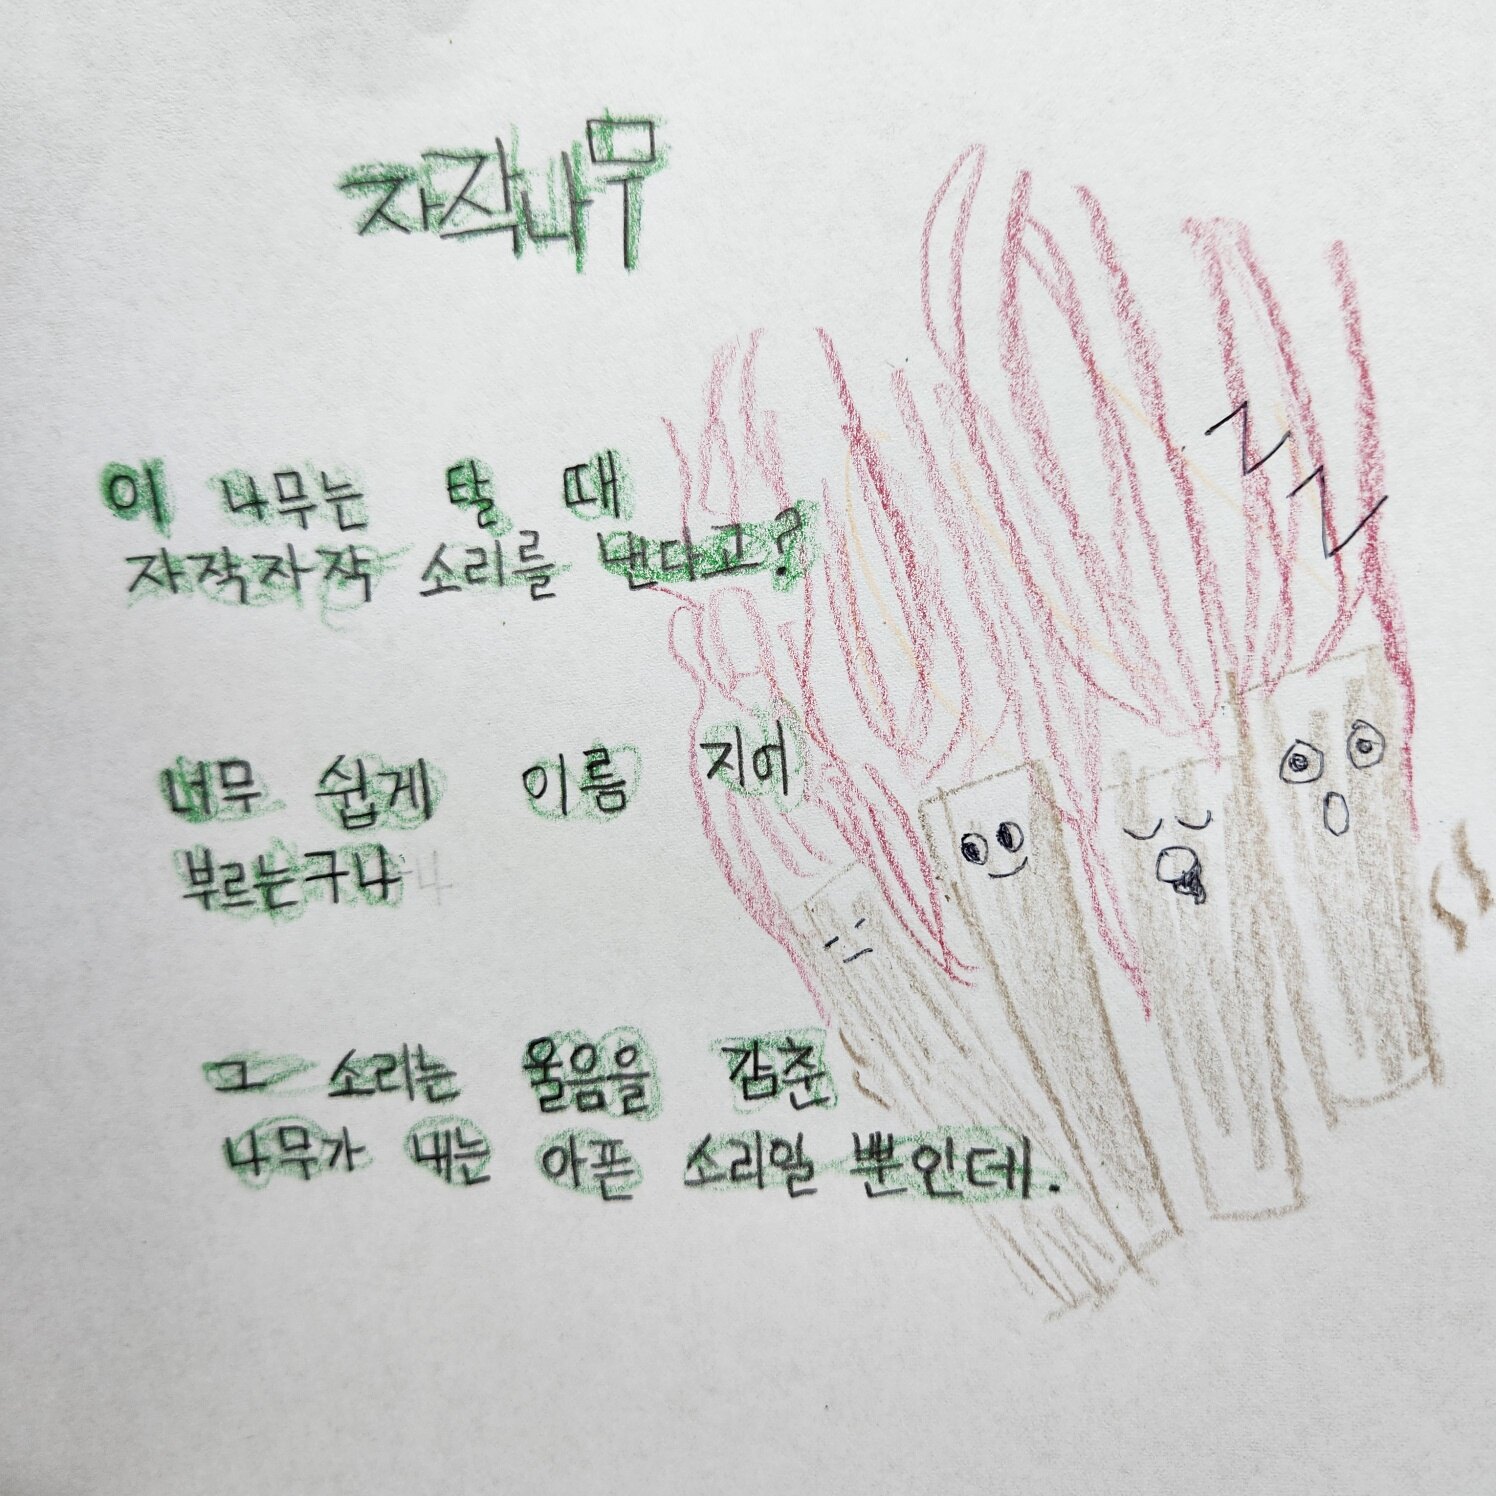 자작나무
이 나무는 탈 때
자작자작 소리를 낸다고?
너무 쉽게 이름 지어
부르는구나
그 소리는 울음을 감춘
나무가 내는 아픈 소리일 뿐인데.